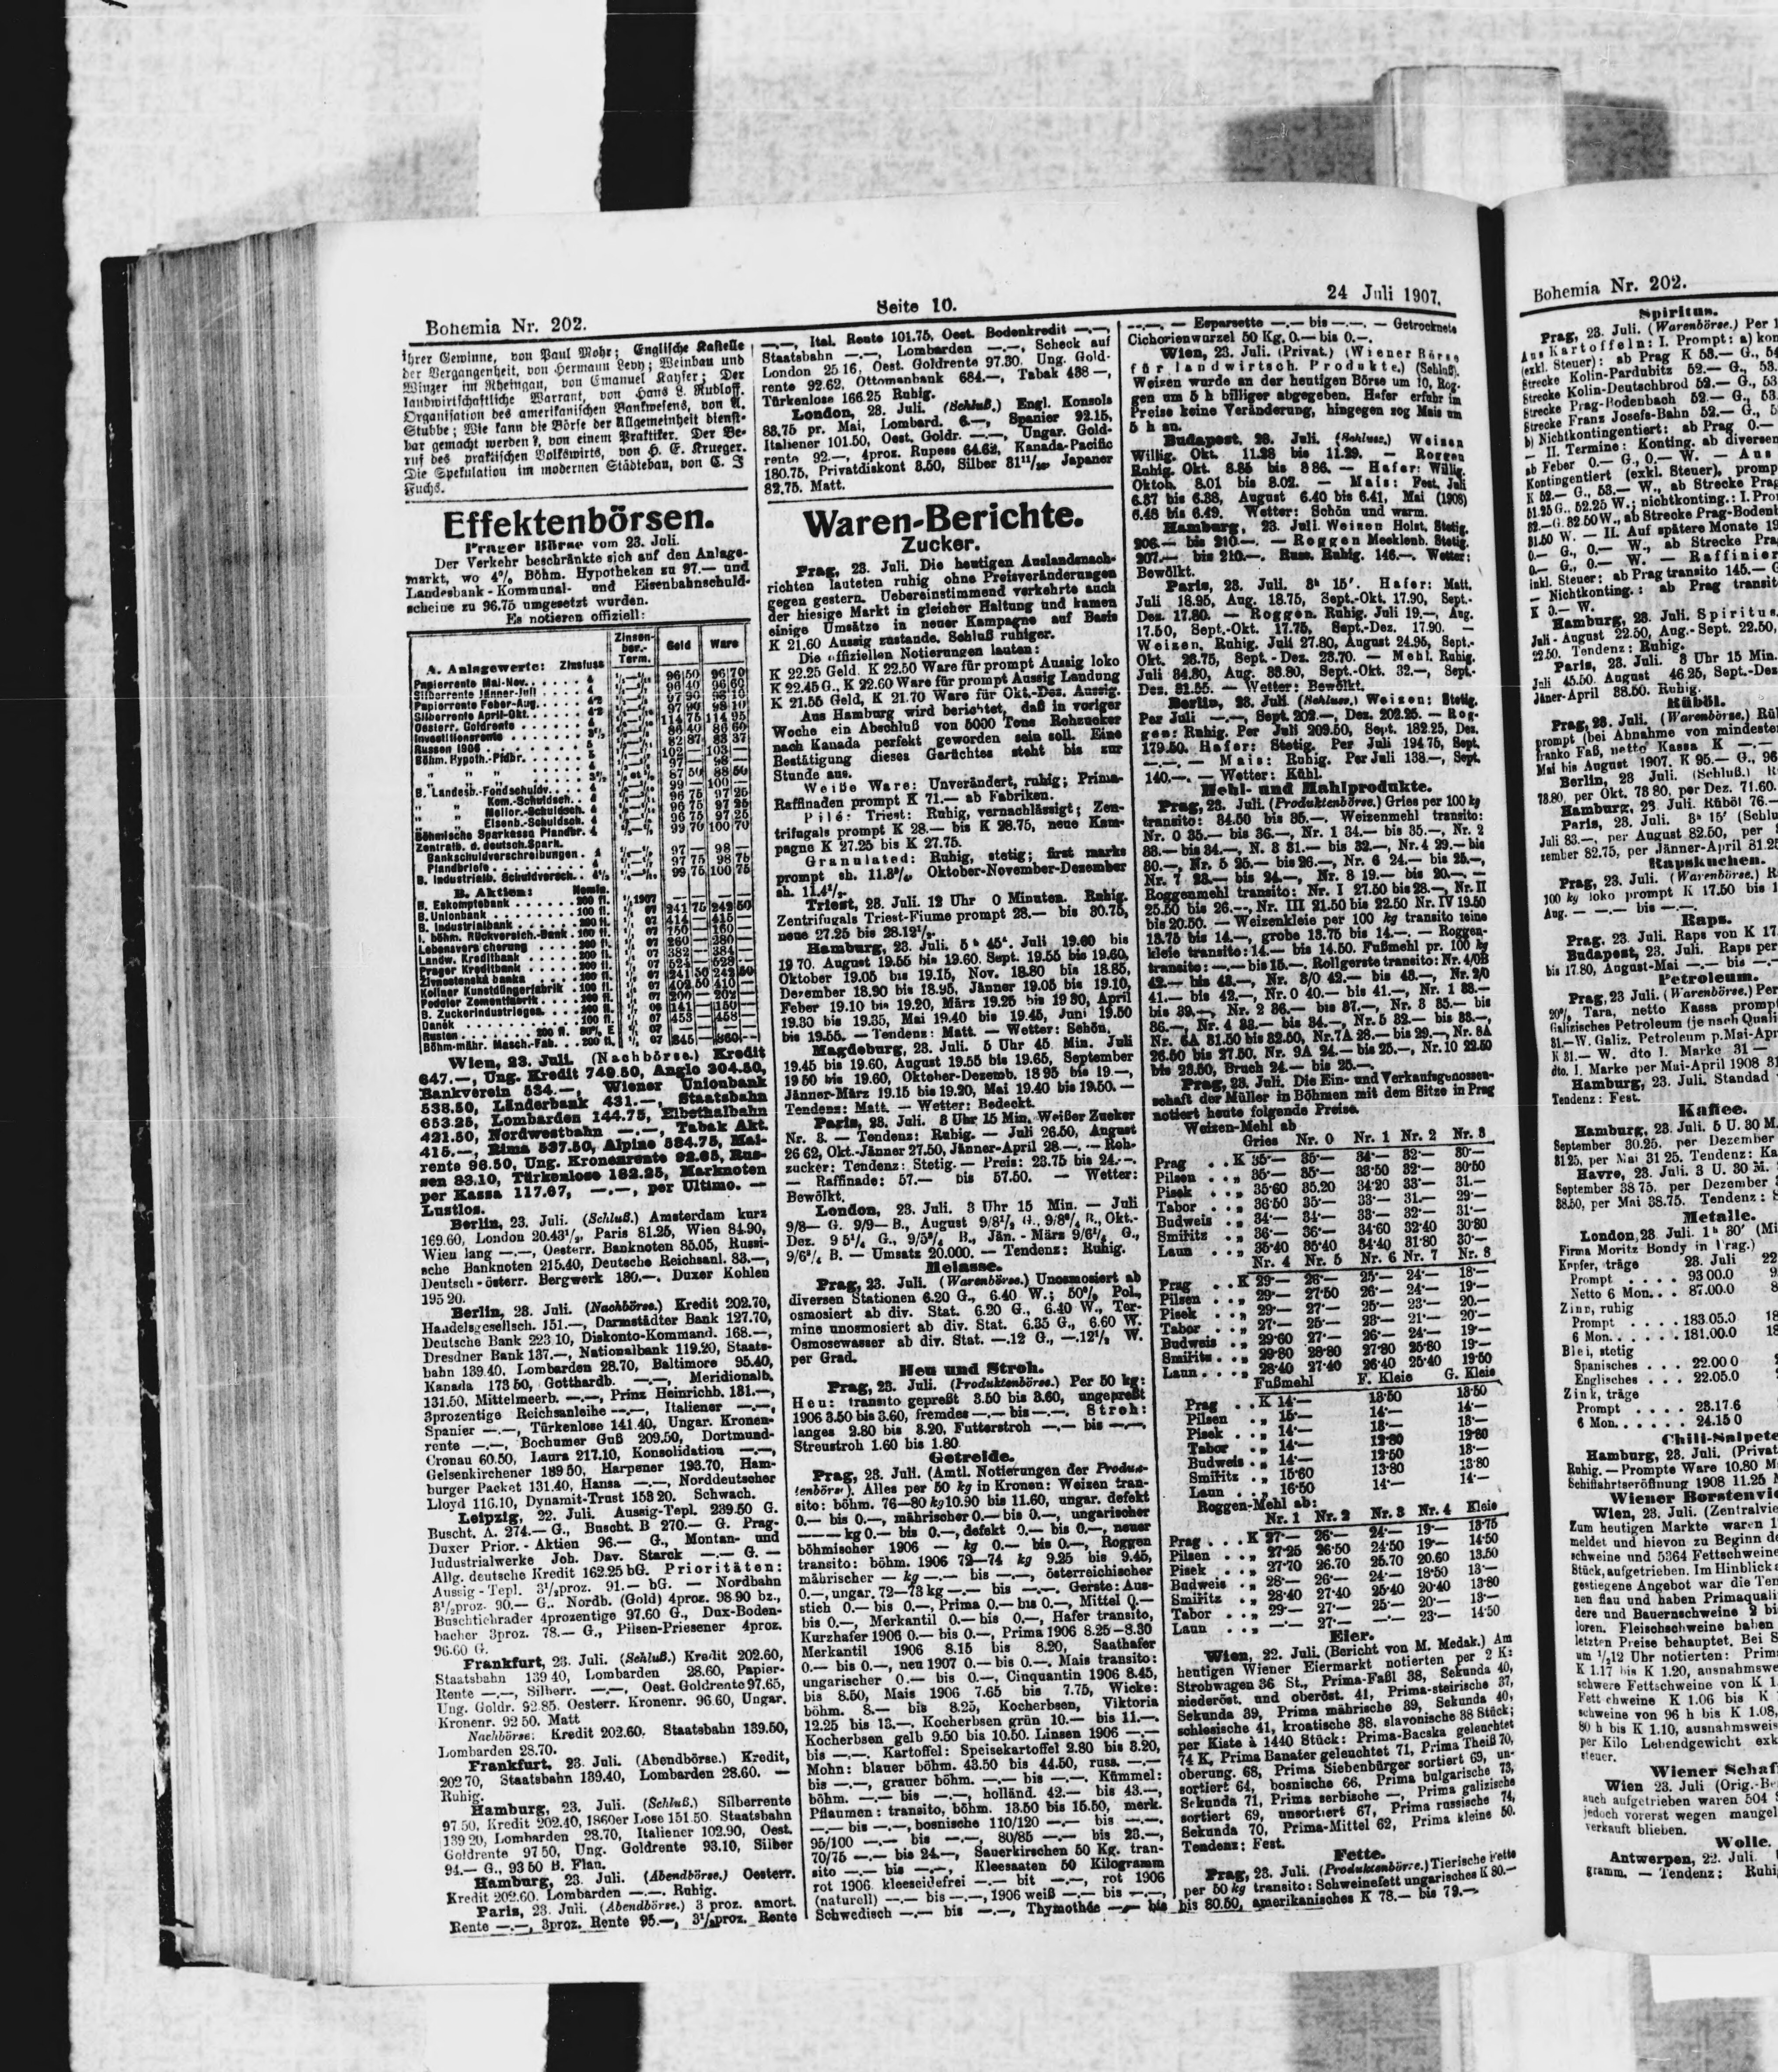 Bohemia Nr. 202.
Seite 10.
24 Juli 1907.
ihrer Gewinne, von Paul Mohr; Englische Kastelle
der Vergangenheit, von Hermann Levy; Weinbau und
Winzer im Rheingau, von Emanuel Kayser; Der
landwirtschaftliche Warrant, von Hans L. Rubloff.
Organisation des amerikanischen Bankwesens, von A.
Stubbe; Wie kann die Börse der Allgemeinheit dienst-
bar gemacht werden?, von einem Praktiker. Der Be-
ruf des praktischen Volkswirts, von H. E. Krueger.
Die Spekulation im modernen Städtebau, von C. J
Fuchs.
Effektenbörsen.
Prager Börse vom 23. Juli.
Der Verkehr beschränkte sich auf den Anlage-
markt, wo 4% Böhm. Hypotheken zu 97.— und
Landesbank-Kommunal- und Eisenbahnschuld-
scheine zu 96.75 umgesetzt wurden.
Es notieren offiziell:
A. Anlagewerte: Zinsfuss Zinsen-ber.-Term. Geld Ware
Papierrente Mai-Nov.
Silberrente Jänner-Juli
Papierrente Feber-Aug.
Silberrente April-Okt.
Oesterr. Goldrente
Investitionsrente
Russen 1906
Böhm. Hypoth.-Pfdbr.
B. Landesb.-Fondschuldv.
Kom.-Schuldsch.
Melior.-Schuldsch.
Eisenb.-Schuldsch.
Böhmische Sparkassa Pfandbr.
Zentralb. d. deutsch. Spark.
Bankschuldverschreibungen
Pfandbriefe
B. Industrialb. Schuldversch.
B. Aktien: Nomin.
B. Eskomptebank
B. Unionbank
B. Industrialbank
I. böhm. Rückversich.-Bank
Landw. Kreditbank
Prager Kreditbank
Zivnostenska banka
Koliner Kunstdüngerfabrik
Podoler Zementfabrik
B. Zuckerindustrieges.
Daněk
Ruston
Böhm-mähr. Masch.-Fab.
Wien, 23. Juli. (Nachbörse.) Kredit
647.—, Ung. Kredit 749.50, Anglo 304.50,
Bankverein 534.—, Wiener Unionbank
538.50, Länderbank 431.—, Staatsbahn
653.25, Lombarden 144.75, Elbethalbahn
421.50, Nordwestbahn —.—, Tabak Akt.
415.—, Rima 537.50, Alpine 584.75, Mai-
rente 96.50, Ung. Kronenrente 92.65, Rus-
sen 83.10, Türkenlose 182.25, Marknoten
per Kassa 117.67, —.—, per Ultimo. —
Lustlos.
Berlin, 23. Juli. (Schluß.) Amsterdam kurz
169.60, London 20.43½, Paris 81.25, Wien 84.90,
Wien lang —.—, Oesterr. Banknoten 85.05, Russi-
sche Banknoten 215.40, Deutsche Reichsanl. 83.—,
Deutsch-österr. Bergwerk 180.—. Duxer Kohlen
195 20.
Berlin, 23. Juli. (Nachbörse.) Kredit 202.70,
Handelsgesellsch. 151.—, Darmstädter Bank 127.70,
Deutsche Bank 223.10, Diskonto-Kommand. 168.—,
Dresdner Bank 137.—, Nationalbank 119.20, Staats-
bahn 139.40, Lombarden 28.70, Baltimore 95.40,
Kanada 173 50, Gotthardb. —.—, Meridionalb.
131.50, Mittelmeerb. —.—, Prinz Heinrichb. 131.—,
3prozentige Reichsanleihe —.—, Italiener —.—,
Spanier —.—, Türkenlose 141.40, Ungar. Kronen-
rente —.—, Bochumer Guß 209.50, Dortmund-
Cronau 60.50, Laura 217.10, Konsolidation —.—,
Gelsenkirchener 189 50, Harpener 193.70, Ham-
burger Packet 131.40, Hansa —.—, Norddeutscher
Lloyd 116.10, Dynamit-Trust 158 20. Schwach.
Leipzig, 22. Juli. Aussig-Tepl. 239.50 G.
Buscht. A. 274.— G., Buscht. B 270.— G. Prag-
Duxer Prior.-Aktien 96.— G., Montan- und
Industrialwerke Joh. Dav. Starck —.— G. —
Allg. deutsche Kredit 162.25 bG. Prioritäten:
Aussig-Tepl. 3½proz. 91.— bG. — Nordbahn
3½proz. 90.— G.. Nordb. (Gold) 4proz. 98 90 bz.,
Buschtiehrader 4prozentige 97.60 G., Dux-Boden-
bacher 3proz. 78.— G., Pilsen-Priesener 4proz.
96.60 G.
Frankfurt, 23. Juli. (Schluß.) Kredit 202.60,
Staatsbahn 139 40, Lombarden 28.60, Papier-
Rente —.—, Silberr. —.—, Oest. Goldrente 97.65,
Ung. Goldr. 92.85. Oesterr. Kronenr. 96.60, Ungar.
Kronenr. 92 50. Matt
Nachbörse: Kredit 202.60. Staatsbahn 139.50,
Lombarden 28.70.
Frankfurt. 23. Juli. (Abendbörse.) Kredit,
202 70, Staatsbahn 139.40, Lombarden 28.60. —
Ruhig.
Hamburg, 23. Juli. (Schluß.) Silberrente
97 50, Kredit 202.40, 1860er Lose 151 50. Staatsbahn
139 20, Lombarden 28.70, Italiener 102.90, Oest.
Goldrente 97 50, Ung. Goldrente 93.10, Silber
94.— G., 93 50 B. Flau.
Hamburg, 23. Juli. (Abendbörse.) Oesterr.
Kredit 202.60. Lombarden —.—. Ruhig.
Paris, 23. Juli. (Abendbörse.) 3 proz. amort.
Rente —.—, 3proz. Rente 95.—, 3½proz. Rente
—.—, Ital. Rente 101.75, Oest. Bodenkredit —.—,
Staatsbahn —.—, Lombarden —.—, Scheck auf
London 25 16, Oest. Goldrente 97.30. Ung. Gold-
rente 92.62, Ottomanbank 684.—, Tabak 438 —,
Türkenlose 166 25 Ruhig.
London, 23. Juli. (Schluß.) Engl. Konsols
83.75 pr. Mai, Lombard. 6.—, Spanier 92.15,
Italiener 101.50, Oest. Goldr. —.—, Ungar. Gold-
rente 92.—, 4proz. Rupess 64.62, Kanada-Pacific
180.75, Privatdiskont 3.50, Silber 31¹¹/₁₆, Japaner
82.75. Matt.
Waren-Berichte.
Zucker.
Prag, 23. Juli. Die heutigen Auslandsnach-
richten lauteten ruhig ohne Preisveränderungen
gegen gestern. Uebereinstimmend verkehrte auch
der hiesige Markt in gleicher Haltung und kamen
einige Umsätze in neuer Kampagne auf Basis
K 21.60 Aussig zustande. Schluß ruhiger.
Die offiziellen Notierungen lauten:
K 22.25 Geld. K 22.50 Ware für prompt Aussig loko
K 22.45 G., K 22.60 Ware für prompt Aussig Landung
K 21.55 Geld, K 21.70 Ware für Okt.-Dez. Aussig.
Aus Hamburg wird berichtet, daß in voriger
Woche ein Abschluß von 5000 Tons Rohzucker
nach Kanada perfekt geworden sein soll. Eine
Bestätigung dieses Gerüchtes steht bis zur
Stunde aus.
Weiße Ware: Unverändert, ruhig; Prima-
Raffinaden prompt K 71.— ab Fabriken.
Pilé: Triest: Ruhig, vernachlässigt; Zen-
trifugals prompt K 28.— bis K 28.75, neue Kam-
pagne K 27.25 bis K 27.75.
Granulated: Ruhig, stetig; first marks
prompt sh. 11.8¾, Oktober-November-Dezember
sh. 11.4½.
Triest, 23. Juli. 12 Uhr 0 Minuten. Ruhig.
Zentrifugals Triest-Fiume prompt 28.— bis 30.75,
neue 27.25 bis 28.12½.
Hamburg, 23. Juli. 5 h 45'. Juli 19.60 bis
19 70. August 19.55 bis 19.60. Sept. 19.55 bis 19.60,
Oktober 19.05 bis 19.15, Nov. 18.80 bis 18.85,
Dezember 18.90 bis 18.95, Jänner 19.05 bis 19.10,
Feber 19.10 bis 19.20, März 19.25 bis 19 30, April
19.30 bis 19.35, Mai 19.40 bis 19.45, Juni 19.50
bis 19.55. — Tendenz: Matt. — Wetter: Schön.
Magdeburg, 23. Juli. 5 Uhr 45 Min. Juli
19.45 bis 19.60, August 19.55 bis 19.65, September
19 50 bis 19.60, Oktober-Dezemb. 18 95 bis 19.—,
Jänner-März 19.15 bis 19.20, Mai 19.40 bis 19.50. —
Tendenz: Matt. — Wetter: Bedeckt.
Paris, 23. Juli. 3 Uhr 15 Min. Weißer Zucker
Nr. 3. — Tendenz: Ruhig. — Juli 26.50, August
26 62, Okt.-Jänner 27.50, Jänner-April 28.—. — Roh-
zucker: Tendenz: Stetig. — Preis: 23.75 bis 24.—.
— Raffinade: 57.— bis 57.50. — Wetter:
Bewölkt.
London, 23. Juli. 3 Uhr 15 Min. — Juli
9/8— G. 9/9— B., August 9/8½ G., 9/8¾ B., Okt.-
Dez. 9 5¼ G., 9/5¾ B., Jän.-März 9/6½ G.,
9/6¾ B. — Umsatz 20.000. — Tendenz: Ruhig.
Melasse.
Prag, 23. Juli. (Warenbörse.) Unosmosiert ab
diversen Stationen 6.20 G., 6.40 W.; 50% Pol.,
osmosiert ab div. Stat. 6.20 G., 6.40 W., Ter-
mine unosmosiert ab div. Stat. 6.35 G., 6.60 W.
Osmosewasser ab div. Stat. —.12 G., —.12½ W.
per Grad.
Heu und Stroh.
Prag, 23. Juli. (Produktenbörse.) Per 50 kg:
Heu: transito gepreßt 3.50 bis 3.60, ungepreßt
1906 3.50 bis 3.60, fremdes —.— bis —.—. Stroh:
langes 2.80 bis 3.20, Futterstroh —.— bis —.—,
Streustroh 1.60 bis 1.80.
Getreide.
Prag, 23. Juli. (Amtl. Notierungen der Produk-
tenbörse). Alles per 50 kg in Kronen: Weizen tran-
sito: böhm. 76—80 kg 10.90 bis 11.60, ungar. defekt
0.— bis 0.—, mährischer 0.— bis 0.—, ungarischer
——— kg 0.— bis 0.—, defekt 0.— bis 0.—, neuer
böhmischer 1906 — kg 0.— bis 0.—, Roggen
transito: böhm. 1906 72—74 kg 9.25 bis 9.45,
mährischer — kg —.— bis —.—, österreichischer
0.—, ungar. 72—73 kg —.— bis —.—. Gerste: Aus-
stich 0.— bis 0.—, Prima 0.— bis 0.—, Mittel 0.—
bis 0.—, Merkantil 0.— bis 0.—, Hafer transito,
Kurzhafer 1906 0.— bis 0.—, Prima 1906 8.25—8.30
Merkantil 1906 8.15 bis 8.20, Saathafer
0.— bis 0.—, neu 1907 0.— bis 0.—. Mais transito:
ungarischer 0.— bis 0.—, Cinquantin 1906 8.45,
bis 8.50, Mais 1906 7.65 bis 7.75, Wicke:
böhm. 8.— bis 8.25, Kocherbsen, Viktoria
12.25 bis 13.—, Kocherbsen grün 10.— bis 11.—.
Kocherbsen gelb 9.50 bis 10.50. Linsen 1906 —.—
bis —.—. Kartoffel: Speisekartoffel 2.80 bis 3.20,
Mohn: blauer böhm. 43.50 bis 44.50, russ. —.—
bis —.—, grauer böhm. —.— bis —.—. Kümmel:
böhm. —.— bis —.—, holländ. 42.— bis 43.—,
Pflaumen: transito, böhm. 13.50 bis 15.50, merk.
—.— bis —.—, bosnische 110/120 —.— bis —.—,
95/100 —.— bis —.—, 80/85 —.— bis 23.—,
70/75 —.— bis 24.—, Sauerkirschen 50 Kg. tran-
sito —.— bis —.—, Kleesaaten 50 Kilogramm
rot 1906 kleeseidefrei —.— bit —.—, rot 1906
(naturell) —.— bis —.—, 1906 weiß —.— bis —.—,
Schwedisch —.— bis —.—, Thymothée —.— bis
—.—. — Esparsette —.— bis —.—. — Getrocknete
Cichorienwurzel 50 Kg. 0.— bis 0.—.
Wien, 23. Juli. (Privat.) (Wiener Börse
für landwirtsch. Produkte.) (Schluß).
Weizen wurde an der heutigen Börse um 10, Rog-
gen um 5 h billiger abgegeben. Hafer erfuhr im
Preise keine Veränderung, hingegen zog Mais um
5 h an.
Budapest, 23. Juli. (Schluss.) Weizen
Willig. Okt. 11.28 bis 11.29. — Roggen
Ruhig. Okt. 8.85 bis 8 86. — Hafer: Willig.
Oktob. 8.01 bis 8.02. — Mais: Fest. Juli
6.37 bis 6.38, August 6.40 bis 6.41, Mai (1908)
6.48 bis 6.49. Wetter: Schön und warm.
Hamburg, 23. Juli. Weizen Holst. Stetig.
206.— bis 210.—. — Roggen Mecklenb. Stetig.
207.— bis 210.—. Russ. Ruhig. 146.—. Wetter:
Bewölkt.
Paris, 23. Juli. 3h 15'. Hafer: Matt.
Juli 18.95, Aug. 18.75, Sept.-Okt. 17.90, Sept.-
Dez. 17.80. — Roggen. Ruhig. Juli 19.—, Aug.
17.50, Sept.-Okt. 17.75, Sept.-Dez. 17.90. —
Weizen. Ruhig. Juli 27.80, August 24.95, Sept.-
Okt. 23.75, Sept.-Dez. 23.70. — Mehl. Ruhig.
Juli 34.80, Aug. 33.80, Sept.-Okt. 32.—, Sept.-
Dez. 31.55. — Wetter: Bewölkt.
Berlin, 23. Juli (Schluss.) Weizen: Stetig.
Per Juli —.—, Sept. 202.—, Dez. 202.25. — Rog-
gen: Ruhig. Per Juli 209.50, Sept. 182.25, Dez.
179.50. Hafer: Stetig. Per Juli 194 75, Sept.
—.—. — Mais: Ruhig. Per Juli 138.—, Sept.
140.—. — Wetter: Kühl.
Mehl- und Mahlprodukte.
Prag, 23. Juli. (Produktenbörse.) Gries per 100 kg
transito: 34.50 bis 35.—. Weizenmehl transito:
Nr. 0 35.— bis 36.—, Nr. 1 34.— bis 35.—, Nr. 2
33.— bis 34.—, N. 3 31.— bis 32.—, Nr. 4 29.— bis
30.—, Nr. 5 25.— bis 26.—, Nr. 6 24.— bis 25.—,
Nr. 7 23.— bis 24.—, Nr. 8 19.— bis 20.—, —
Roggenmehl transito: Nr. I 27.50 bis 28.—, Nr. II
25.50 bis 26.—, Nr. III 21.50 bis 22.50 Nr. IV 19.50
bis 20.50. — Weizenkleie per 100 kg transito feine
13.75 bis 14.—, grobe 13.75 bis 14.—. — Roggen-
kleie transito: 14.— bis 14.50. Fußmehl pr. 100 kg
transito: —.— bis 15.—. Rollgerste transito: Nr. 4/0B
42.— bis 43.—, Nr. 3/0 42.— bis 43.—, Nr. 2/0
41.— bis 42.—, Nr. 0 40.— bis 41.—, Nr. 1 38.—
bis 39.—, Nr. 2 36.— bis 37.—, Nr. 3 35.— bis
36.—, Nr. 4 33.— bis 34.—, Nr. 5 32.— bis 33.—,
Nr. 6A 31.50 bis 32.50, Nr. 7A 28.— bis 29.—, Nr. 8A
26.50 bis 27.50, Nr. 9A 24.— bis 25.—, Nr. 10 22.50
bis 23.50, Bruch 24.— bis 25.—.
Prag, 23. Juli. Die Ein- und Verkaufsgenossen-
schaft der Müller in Böhmen mit dem Sitze in Prag
notiert heute folgende Preise.
Weizen-Mehl ab
Gries Nr. 0 Nr. 1 Nr. 2 Nr. 3
Prag . . K 35·— 35·— 34·— 32·— 30·—
Pilsen . . „ 35·— 35·— 33·50 32·— 30·50
Pisek . . „ 35·60 35.20 34·20 33·— 31.—
Tabor . . „ 36·50 35·— 33·— 31.— 29·—
Budweis . „ 34·— 34·— 33·— 32·— 31·—
Smiřitz . „ 36·— 36·— 34·60 32·40 30·80
Laun . . „ 35·40 35·40 34·40 31·80 30·—
Nr. 4 Nr. 5 Nr. 6 Nr. 7 Nr. 8
Prag . . K 29·— 26·— 25·— 24·— 18·—
Pilsen . . „ 29·— 27·50 26·— 24·— 19·—
Pisek . . „ 29·— 27·— 25·— 23·— 20.—
Tabor . . „ 27·— 25·— 23·— 21·— 20·—
Budweis . „ 29·60 27·— 26·— 24·— 19·—
Smiřitz . „ 29·80 28·80 27·80 25·80 19·—
Laun . . . „ 28·40 27·40 26·40 25·40 19·50
Fußmehl F. Kleie G. Kleie
Prag . . K 14·— 13·50 13·50
Pilsen . „ 15·— 14·— 14·—
Pisek . . „ 14·— 13·— 13·—
Tabor . . „ 14·— 12·80 12·80
Budweis . „ 14·— 12·50 13·—
Smiřitz . „ 15·60 13·80 13·80
Laun . . „ 16·50 14·— 14·—
Roggen-Mehl ab:
Nr. 1 Nr. 2 Nr. 3 Nr. 4 Kleie
Prag . . . K 27·— 26·— 24·— 19·— 13·75
Pilsen . . „ 27·25 26·50 24·50 19·— 14·50
Pisek . . „ 27·70 26.70 25.70 20.60 13.50
Budweis . „ 28·— 26·— 24·— 18·50 13·—
Smiřitz . „ 28·40 27·40 25·40 20·40 13·80
Tabor . . „ 29·— 27·— 25·— 20·— 13·—
Laun . . „ —·— 27·— —·— 23·— 14·50
Eier.
Wien, 22. Juli. (Bericht von M. Medak.) Am
heutigen Wiener Eiermarkt notierten per 2 K:
Strohwagen 36 St., Prima-Faßl 38, Sekunda 40,
niederöst. und oberöst. 41, Prima-steirische 37,
Sekunda 39, Prima mährische 39, Sekunda 40,
schlesische 41, kroatische 38, slavonische 38 Stück;
per Kiste à 1440 Stück: Prima-Bacska geleuchtet
74 K, Prima Banater geleuchtet 71, Prima Theiß 70,
oberung. 68, Prima Siebenbürger sortiert 69, un-
sortiert 64, bosnische 66, Prima bulgarische 73,
Sekunda 71, Prima serbische —, Prima galizische
sortiert 69, unsortiert 67, Prima russische 74,
Sekunda 70, Prima-Mittel 62, Prima kleine 50.
Tendenz: Fest.
Fette.
Prag, 23. Juli. (Produktenbörse.) Tierische Fette
per 50 kg transito: Schweinefett ungarisches K 80.—
bis 80.50, amerikanisches K 78.— bis 79.—.
Bohemia Nr. 202.
Spiritus.
Prag, 23. Juli. (Warenbörse.) Per 1
Aus Kartoffeln: I. Prompt: a) kon
(exkl. Steuer): ab Prag K 53.— G., 54
Strecke Kolin-Pardubitz 52.— G., 53.
Strecke Kolin-Deutschbrod 52.— G., 53
Strecke Prag-Bodenbach 52.— G., 53.
Strecke Franz Josefs-Bahn 52.— G., 5
b) Nichtkontingentiert: ab Prag 0.—
— II. Termine: Konting. ab diversen
ab Feber 0.— G., 0.— W. — Aus
Kontingentiert (exkl. Steuer), promp
K 52.— G., 53.— W., ab Strecke Prag
51.25 G., 52.25 W.; nichtkonting.: I. Pro
32.—G. 32.50 W., ab Strecke Prag-Bodenb
31.50 W. — II. Auf spätere Monate 19
0.— G., 0.— W., ab Strecke Pra
0.— G., 0.— W. — Raffinier
inkl. Steuer: ab Prag transito 145.— G
— Nichtkonting.: ab Prag transit
K 0.— W.
Hamburg, 23. Juli. Spiritus.
Juli-August 22.50, Aug.-Sept. 22.50,
22.50. Tendenz: Ruhig.
Paris, 23. Juli. 3 Uhr 15 Min.
Juli 45.50. August 46 25, Sept.-Dez
Jäner-April 38.50. Ruhig.
Rüböl.
Prag, 23. Juli. (Warenbörse.) Rü
prompt (bei Abnahme von mindeste
franko Faß, netto Kassa K —.—
Mai bis August 1907. K 95.— G., 96
Berlin, 23 Juli. (Schluß.) R
78.80, per Okt. 73 80, per Dez. 71.60.
Hamburg, 23. Juli. Rüböl 76.—
Paris, 23. Juli. 3h 15' (Schlu
Juli 83.—, per August 82.50, per
tember 82.75, per Jänner-April 81.25
Rapskuchen.
Prag, 23. Juli. (Warenbörse.) R
100 kg loko prompt K 17.50 bis 1
Aug. — —.— bis —.—.
Raps.
Prag. 23. Juli. Raps von K 17
Budapest, 23. Juli. Raps per
bis 17.80, August-Mai —.— bis —.—
Petroleum.
Prag, 23 Juli. (Warenbörse.) Per
20% Tara, netto Kassa prompt
Galizisches Petroleum (je nach Quali
31.—W. Galiz. Petroleum p. Mai-Apr
K 31.— W. dto I. Marke 31 —
dto. I. Marke per Mai-April 1908 31
Hamburg, 23. Juli. Standad
Tendenz: Fest.
Kaffee.
Hamburg, 23. Juli. 5 U. 30 M.
September 30.25. per Dezember
31 25, per Mai 31 25. Tendenz: Ka
Havre, 23. Juli. 3 U. 30 M.
September 38 75. per Dezember
38.50, per Mai 38.75. Tendenz: S
Metalle.
London, 23 Juli. 1h 30' (Mi
Firma Moritz Bondy in Prag.)
Kupfer, träge 23. Juli 22
Prompt . . . . 93 00.0 9
Netto 6 Mon. . . 87.00.0 8
Zinn, ruhig
Prompt . . . . 183 05.0 18
6 Mon. . . . . . 181.00.0 18
Blei, stetig
Spanisches . . . 22.00 0
Englisches . . . 22.05.0
Zink, träge
Prompt . . . . 23.17.6
6 Mon. . . . . 24.15 0
Chili-Salpete
Hamburg, 23. Juli. (Privat
Ruhig. — Prompte Ware 10.80 M
Schiffahrtseröffnung 1908 11.25 M
Wiener Borstenvie
Wien, 23. Juli. (Zentralvie
Zum heutigen Markte waren 1
meldet und hievon zu Beginn de
schweine und 5364 Fettschweine
Stück, aufgetrieben. Im Hinblick a
gestiegene Angebot war die Ten
nen flau und haben Primaquali
dere und Bauernschweine 2 bi
loren. Fleischschweine haben
letzten Preise behauptet. Bei S
um ½12 Uhr notierten: Prima
K 1.17 bis K 1.20, ausnahmswe
schwere Fettschweine von K 1.
Fett chweine K 1.06 bis K
schweine von 96 h bis K 1.08,
80 h bis K 1.10, ausnahmsweis
per Kilo Lebendgewicht exk
steuer.
Wiener Schaf
Wien 23. Juli (Orig.-Be
auch aufgetrieben waren 504 S
jedoch vorerst wegen mangel
verkauft blieben.
Wolle.
Antwerpen, 22. Juli.
gramm. — Tendenz: Ruhi